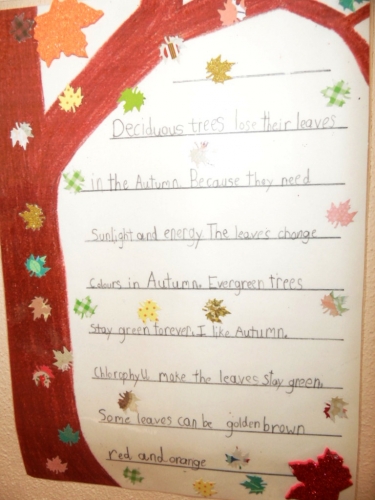 Deciduous trees lose their leaves
in the Autumn. Because they need
Sunlight and energy. The leaves change
Colours in Autumn. Evergreen trees
Stay green forever. I like Autumn.
Chlorophyll make the leaves stay green.
Some leaves can be golden brown
red and orange